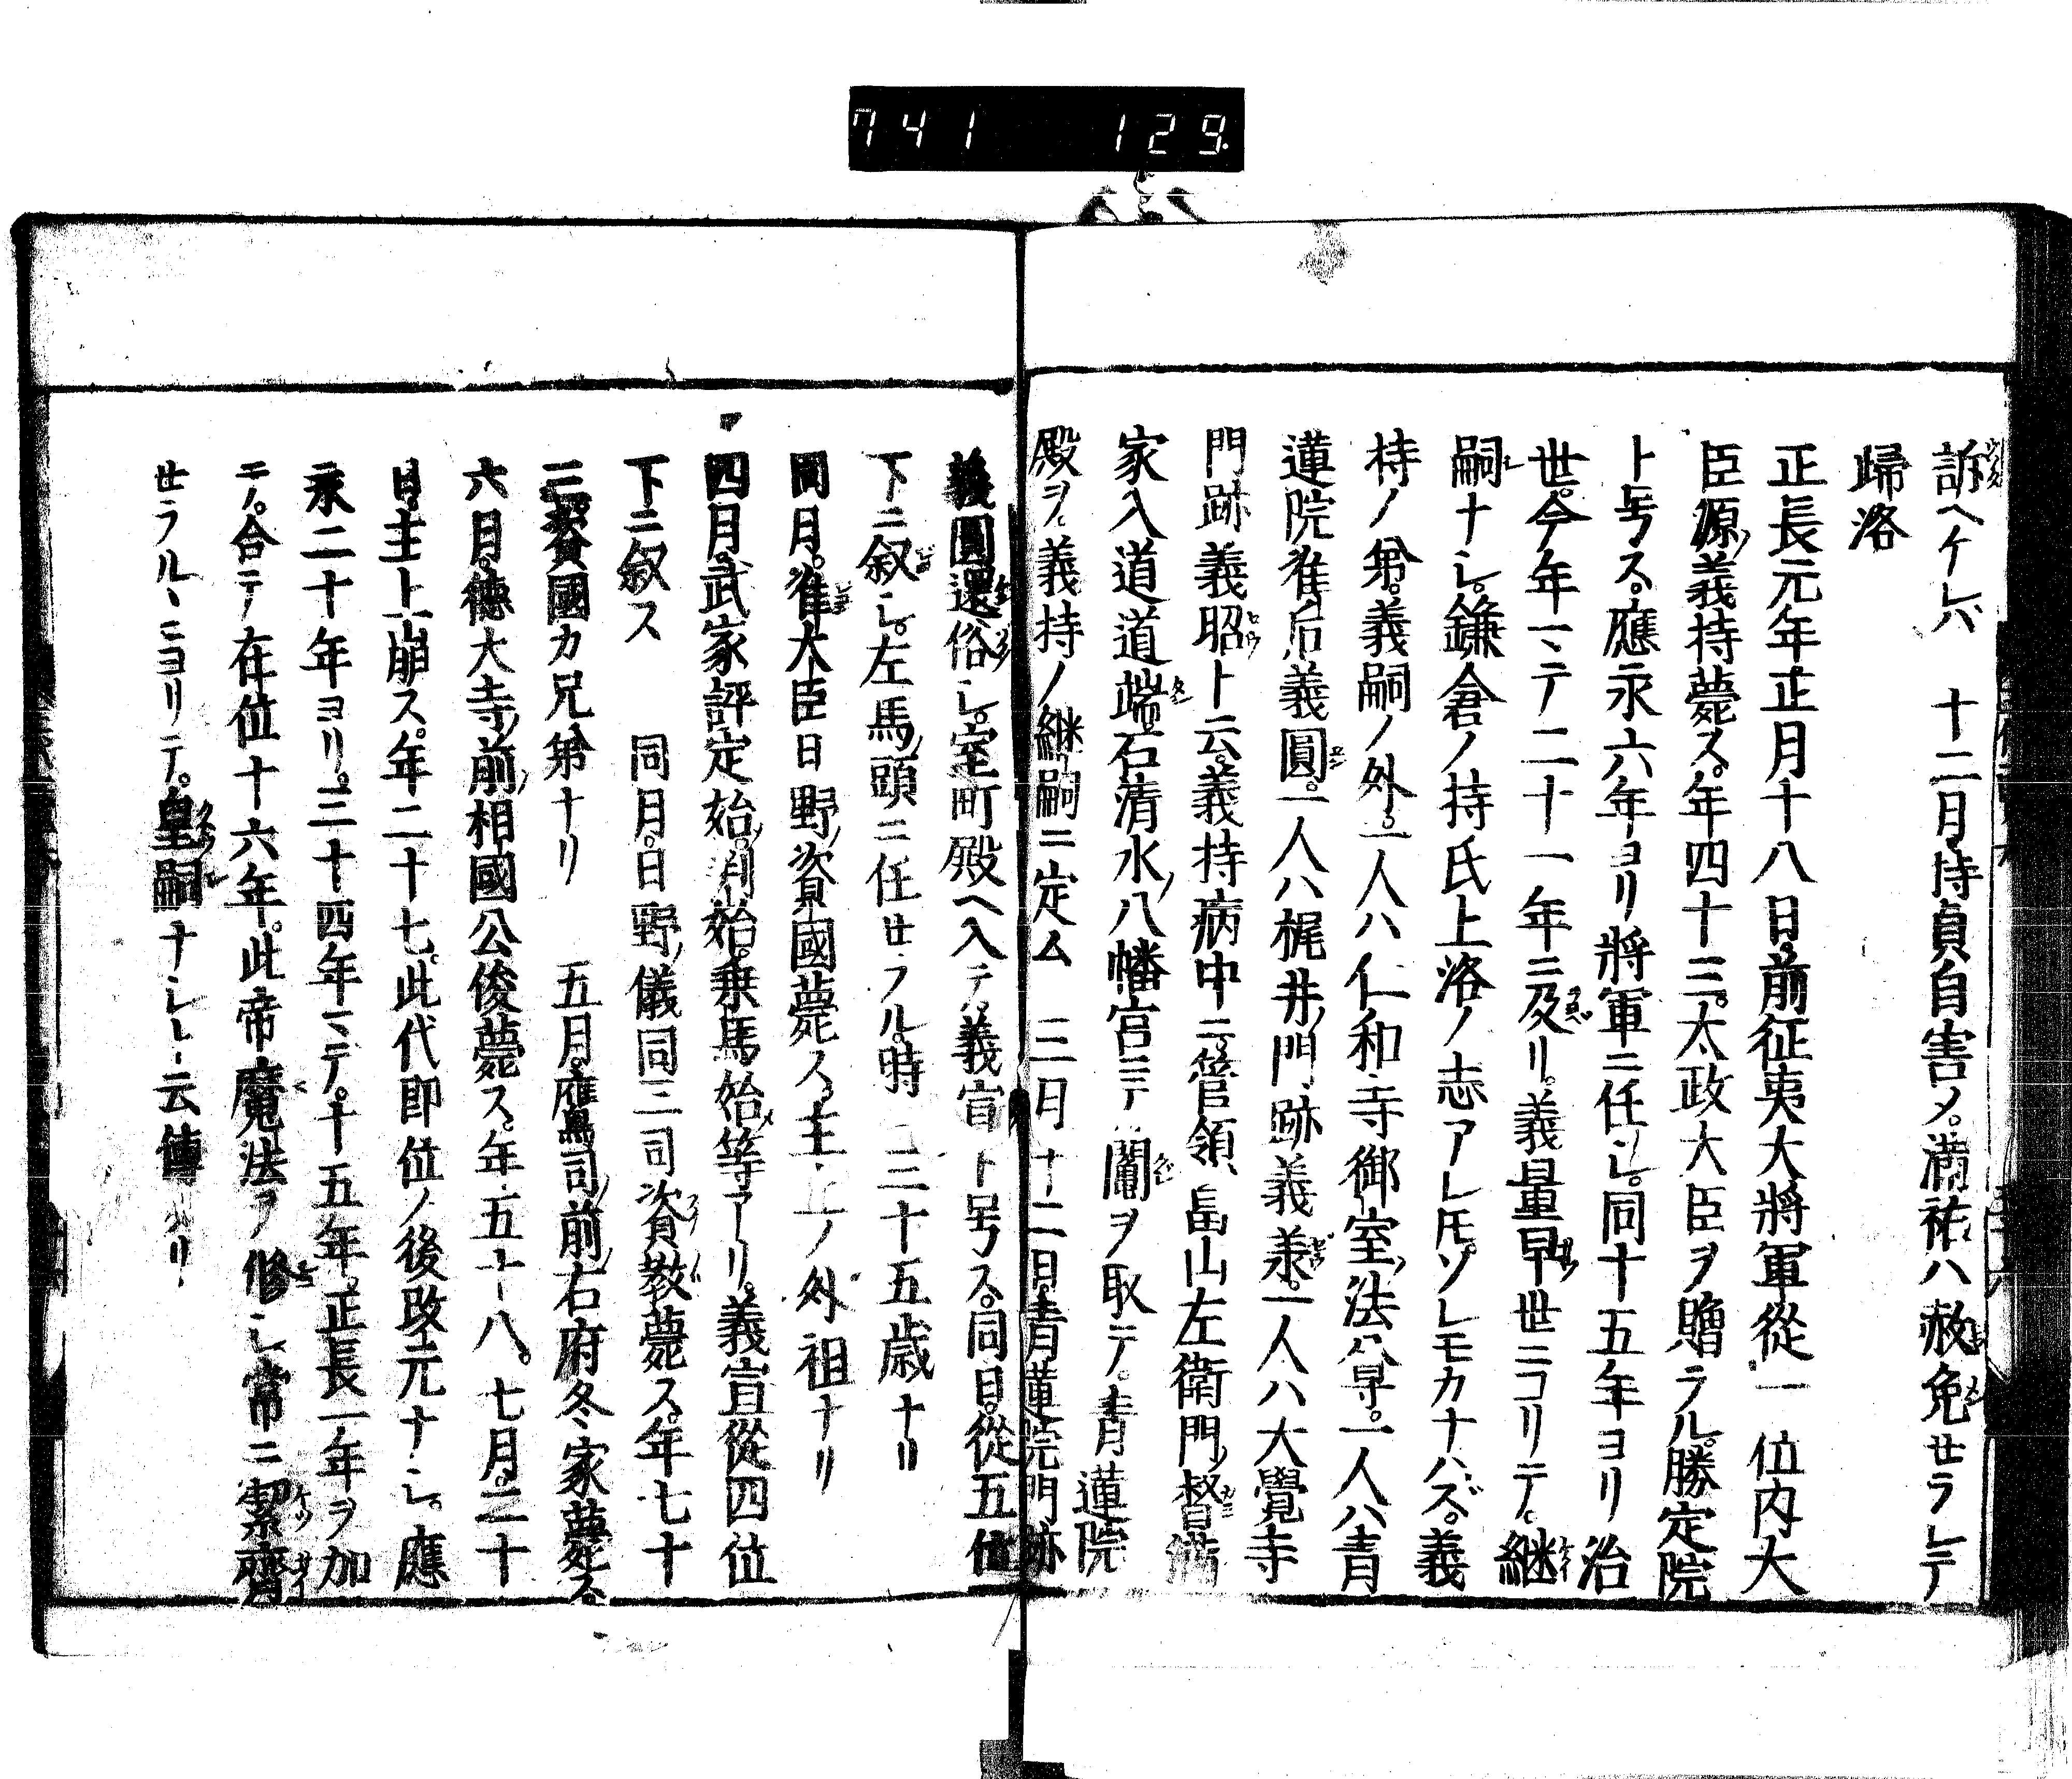 741 129
訴ヘケレバ 十二月持貞自害メ。満祐ハ赦免セラレテ
歸洛
正長元年正月十八日。前征夷大將軍從一位内大
臣源義持薨ス。年四十三。太政大臣ヲ贈ラル。勝定院
ト号ス。應永六年ヨリ將軍ニ任シ。同十五年ヨリ治
世。今年マテ二十一年ニ及リ。義量早世ニヨリテ。継
嗣ナシ。鎌倉ノ持氏上洛ノ志アレ𪜈。ソレモカナハズ。義
持ノ弟。義嗣ノ外。一人ハ仁和寺御室法尊。一人ハ青
蓮院准后義圓。一人ハ梶井門跡義承。一人ハ大覺寺
門跡義昭ト云。義持病中ニ。管領畠山左衛門督満
家入道道端。石清水八幡宮ニテ。鬮ヲ取テ。青蓮院
殿ヲ。義持ノ継嗣ニ定ム 三月十二日。青蓮院門跡
義圓還俗シ。室町殿ヘ入テ。義宣ト号ス。同日。從五位
下ニ叙シ。左馬頭ニ任セラル。時ニ三十五歳ナリ
同月。准大臣日野資國薨ス。主上ノ外祖ナリ
四月。武家評定始。判始。乗馬始等アリ。義宣從四位
下ニ叙ス 同月。日野儀同三司資教薨ス。年七十
二。資國カ兄弟ナリ 五月。鷹司前右府冬家薨ス。
六月。德大寺前相國公俊薨ス。年五十八。七月。二十
日。主上崩ス。年二十七。此代即位ノ後改元ナシ。應
永二十年ヨリ。三十四年マテ。十五年。正長一年ヲ加
テ。合テ在位十六年。此帝魔法ヲ修シ。常ニ潔齊
セラルヽニヨリテ。皇嗣ナシト云傳タリ